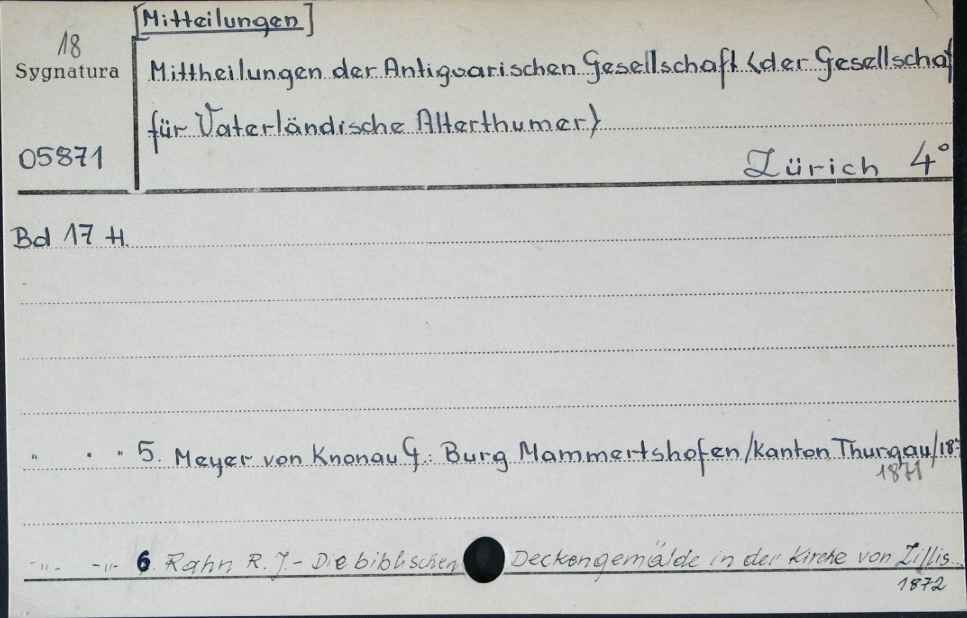 [Mitteilungen]
18
Sygnatura
Mittheilungen der Antiquarischen Gesellschaft (der Gesellschaf
für Vaterländische Alterthumer)
05871
Zürich 4°
Bd 17 H.
" " " 5. Meyer von Knonau G.: Burg Mammertshofen /Kanton Thurgau/187
1871
-"- -"- 6 Rahn R. J. - Die biblischen Deckengemälde in der Kirche von Zillis.
1872